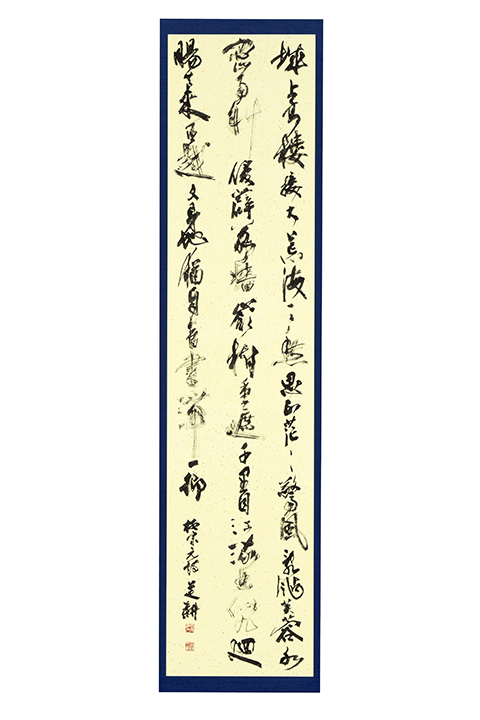 城上高樓接大荒海天愁思正茫々驚風乱颭芙蓉水
密雨斜侵薜荔墻嶺樹重遮千里目江流曲似九廻
腸共来百越文身地猶自音書滞一郷
柳宗元詩 芝耕